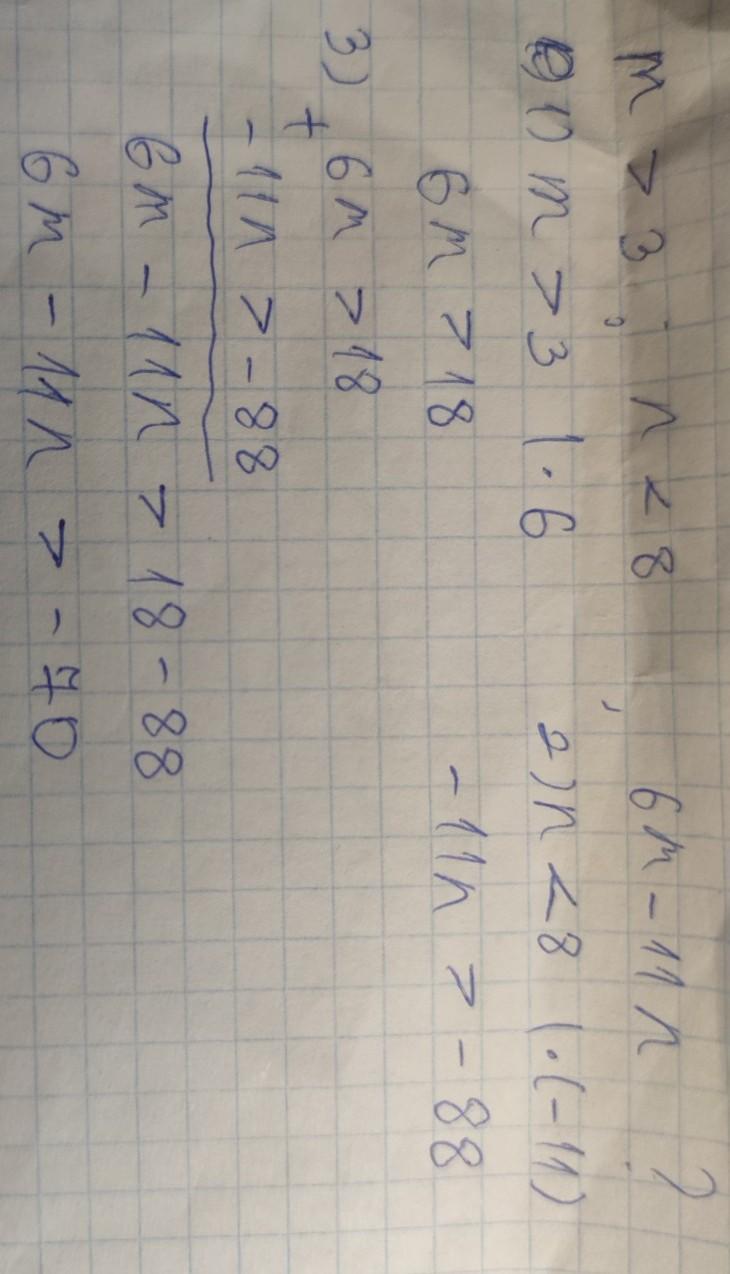 m > 3; n < 8, 6m - 11n ?
1) m > 3 | · 6 2) n < 8 | · (-11)
6m > 18 -11n > -88
3) 6m > 18
+
-11n > -88
6m - 11n > 18 - 88
6m - 11n > - 70